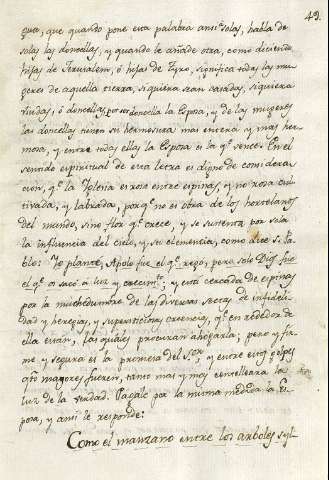 49.
gua, que quando pone esta palabra ansi solas, habla de
solas las doncellas, y quando le añade otra, como diciendo
hijas de Jerusalem, ò hijas de Tyro, significa todas las mu-
geres de aquella tierra, siquiera sean casadas, siquiera
viudas, ò doncellas, por ser doncella la Esposa, y de las mugeres
las doncellas tienen su hermosura mas entera y mas her-
mosa, y entre todas ellas la Esposa es la q.e vence. En el
sentido espiritual de esta letra es digno de considera-
cion, q.e la Iglesia es rosa entre espinas, y no rosa cul-
tivada, y labrada, porq.e no es obra de los hortelanos
del mundo, sino flor q.e crece, y se sustenta por sola
la influencia del cielo, y su clementia, como dice S. Pa-
blo: Yo planté, Apolo fue el q.e regó, pero solo Dios fue
el q.e os sacó a luz y crecim.to; y está cercada de espinas
por la muchedumbre de las diversas sectas de infideli-
dad y heregias, y supersticiosas creencias, q.e en rededor de
ella están, las quales procuran ahogarla; pero y fir-
me y segura es la promesa del Sor, y entre estos golpes
q.to mayores fueren, tanto mas y muy centelleará la
luz de la verdad. Pagale por la misma medida la Es-
posa, y ansi le responde:
Como el manzano entre los arboles syl-